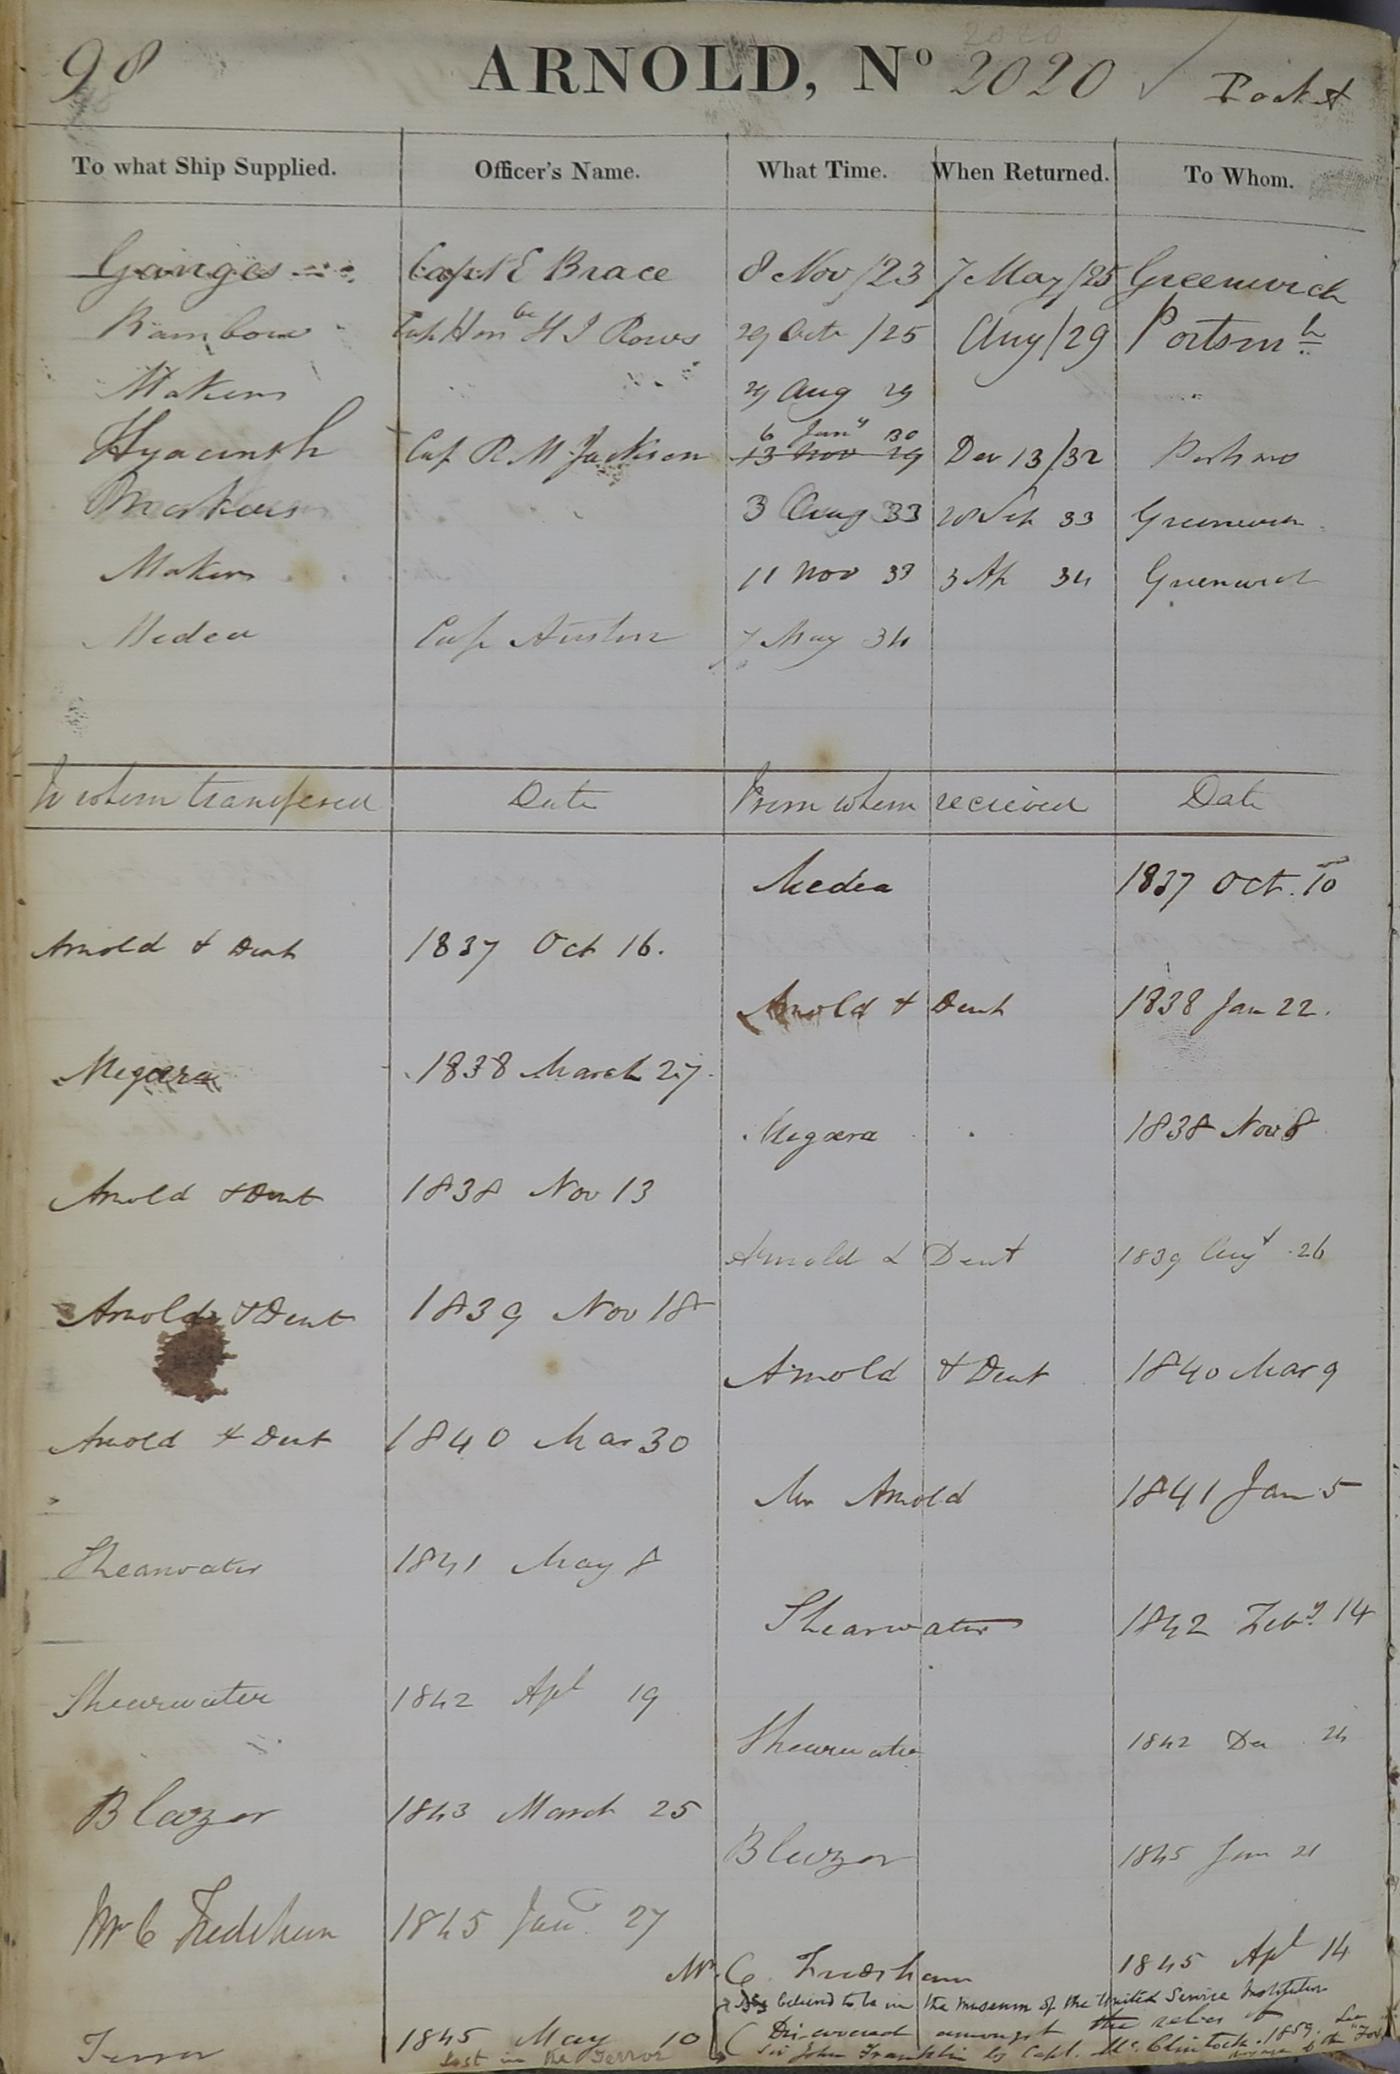 98 ARNOLD, Nº 2020 Pocket
To what Ship Supplied. Officer's Name. What Time. When Returned. To Whom.
Ganges Capt E Brace 8 Nov/23 7 May/25 Greenwich
Rainbow Cap Honble H J Rous 29 Octr /25 Aug/29 Portsmh
Makers 29 Aug 29
6 Jany 30
Hyacinth Cap R. M. Jackson 13 Nov 29 Dec 13/32 Portsmo
Makers 3 Aug 33 Sep 33 Greenwich
Makers 11 Nov 33 3 Ap 34 Greenwich
Medea Cap Austin 7 May 34
To whom transfered Date From whom recieved Date
Medea 1837 Oct. 10
Arnold & Dent 1837 Oct 16.
Arnold & Dent 1838 Jan 22.
Megæra 1838 March 27.
Megæra 1838 Nov 8
Arnold & Dent 1838 Nov 13
Arnold & Dent 1839 Augt 26
Arnold & Dent 1839 Nov 18
Arnold & Dent 1840 Mar 9
Arnold & Dent 1840 Mar 30
Mr Arnold 1841 Jan 5
Shearwater 1841 May 8
Shearwater 1842 Feby 14
Shearwater 1842 Apl 19
Shearwater 1842 Dec 24
Blazer 1843 March 25
Blazer 1845 Jan 21
Mr C Frodsham 1845 Jany 27
Mr C Frodsham 1845 Apl 14
believed to be in the Museum of the United Service Institution
Terror 1845 May 10 Discovered amongst the relics of
Lost in the Terror Sir John Franklin by Capt. McClintock. 1859. See voyage of the "Fox"